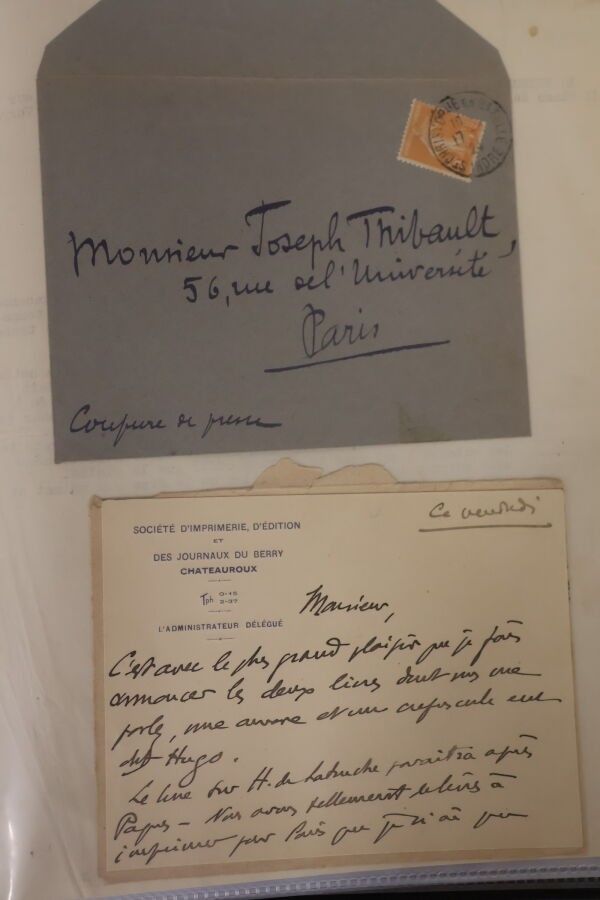 Monsieur Joseph Thibault,
56, rue de l'Université
Paris
Coupure de presse
Ce vendredi
SOCIÉTÉ D'IMPRIMERIE, D'ÉDITION
ET
DES JOURNAUX DU BERRY
CHATEAUROUX
Tph 0-15
2-37
L'ADMINISTRATEUR DÉLÉGUÉ
Monsieur,
C'est avec le plus grand plaisir que je fais
annoncer les deux livres dont vous me
parlez, une aurore et un crépuscule
dit Hugo.
Le livre sur H. de Latouche paraîtra après
Pâques - Nous avons tellement de livres à
imprimer pour Paris que je n'ai pu